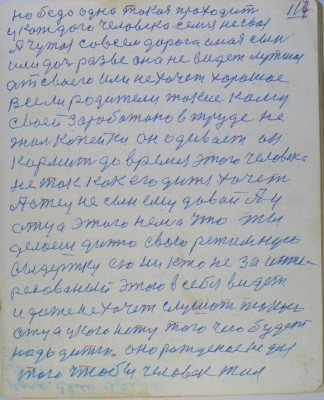 но бедо одна такая проходит 118
у каждого человека семя не своя
А чужая совсем дорога иная сын
или доч разве она не видет
от своего или не хочет хорошае
Всели родители такие кому
своей заработано в труде не
жал копейки он одивает он
кормит до время этого человека
не так как его дитя хочет
А отец не сын ему давай А у
отца этого нема что ты
делаеш дитё свою
выдержку сю ни кто не за инте-
ресованый этово в себя видет
и даже не хочет слушат такова
отца у кого нету того что будет
надь дитём. оно рождаеное не для
того чтобы человек жил